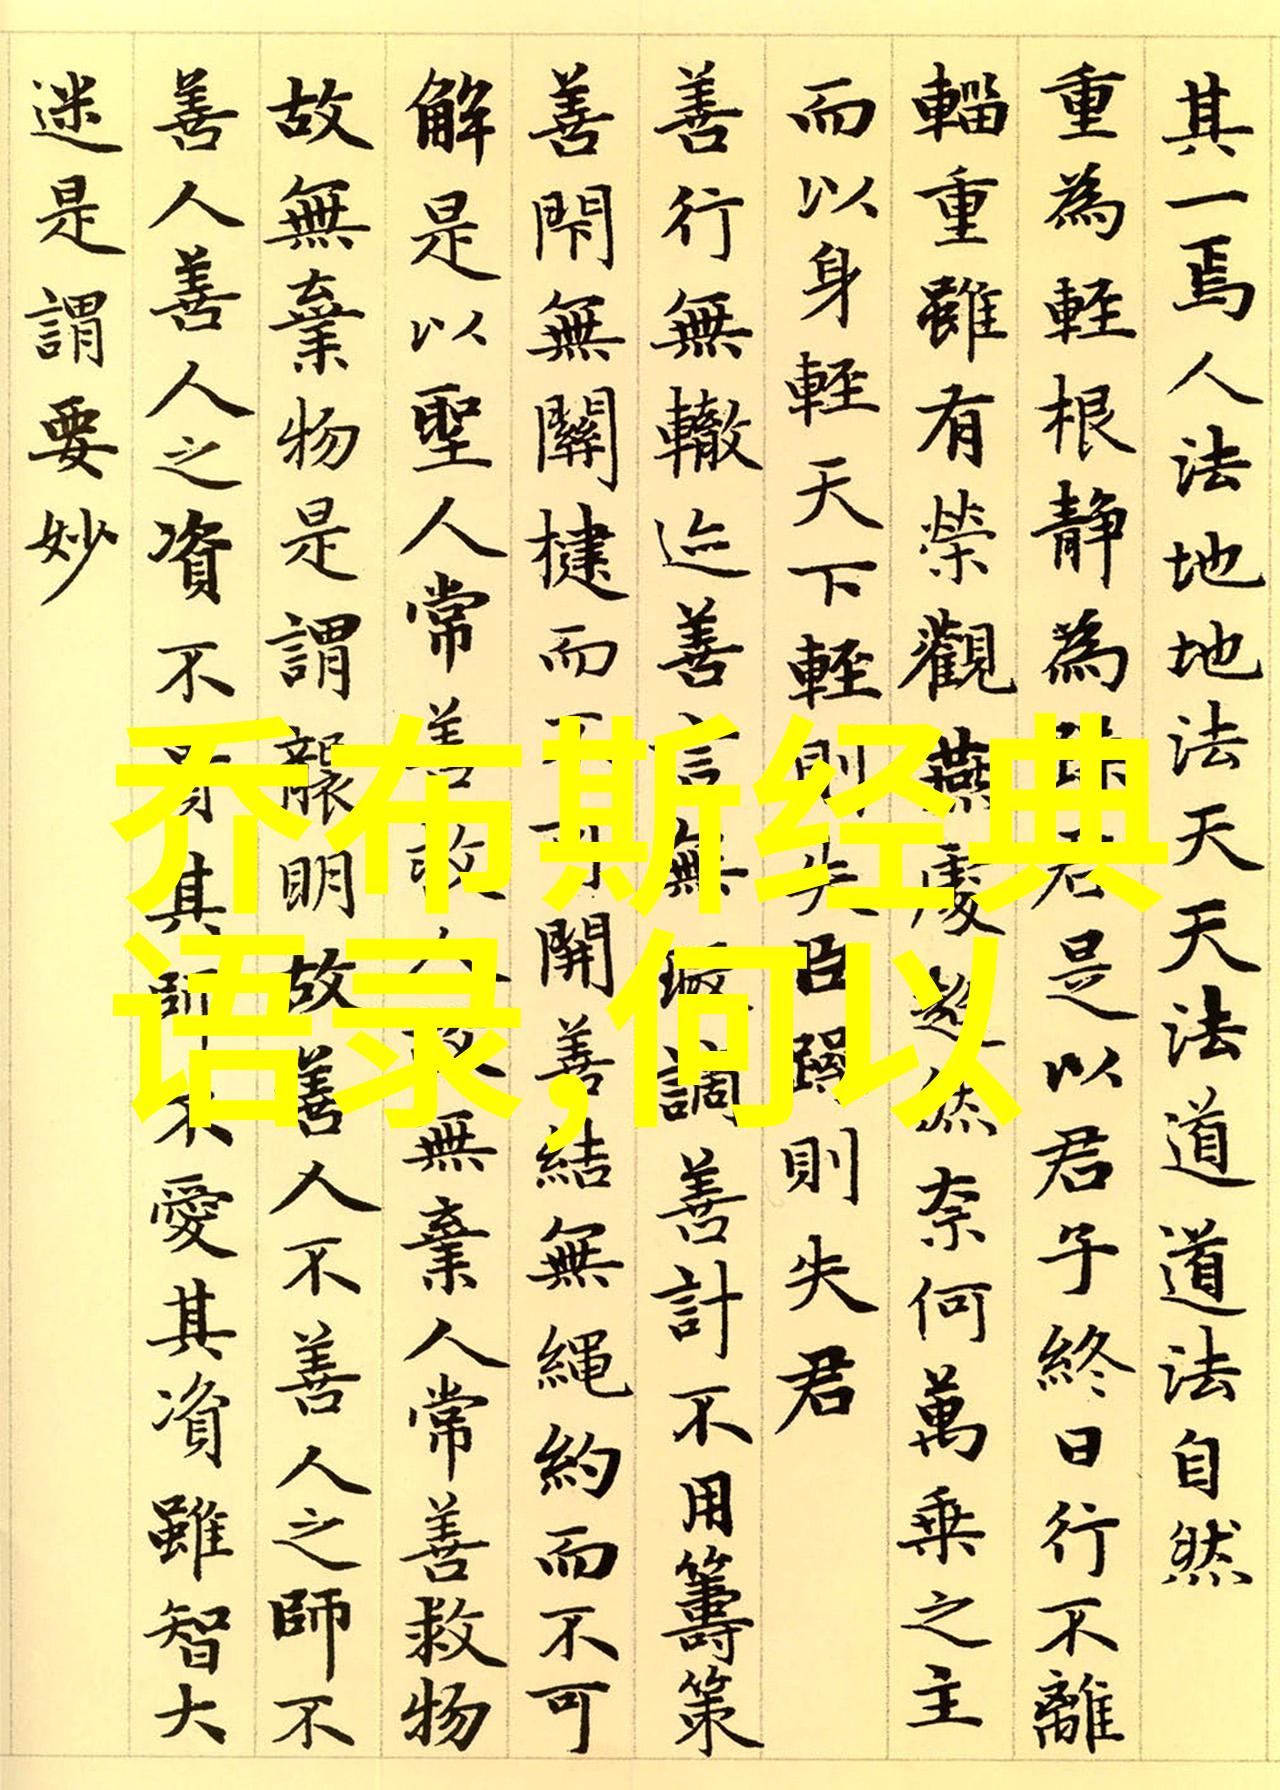 其一焉人法地地法天天法道道法自然
重為輕根靜為躁君是以君子終日行不離
輜重雖有榮觀燕處超然奈何萬乘之主
而以身輕天下輕則失臣躁則失君
善行無轍迹善言無瑕謫善計不用籌策
善閇無關楗而不可開善結無繩約而不可
解是以聖人常善救人故無棄人常善救物
故無棄物是謂襲明故善人不善人之師不
善人善人之資不貴其師不愛其資雖智大
迷是謂要妙
乔布斯经典
语录,何以